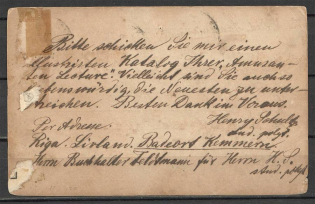 Bitte schicken Sie mir einen
illustrirten Katalog Ihrer "Amusan-
ten Lecture". Vielleicht sind Sie auch so
liebenswürdig die Neuesten zu unter-
streichen. Besten Dank im Voraus.
Henry Schultz
stud. polyt.
Per Adresse:
Riga. Livland. Badeort Kemmern.
Herrn Buchhalter Feldtmann für Herrn H. S.
stud. polyt.